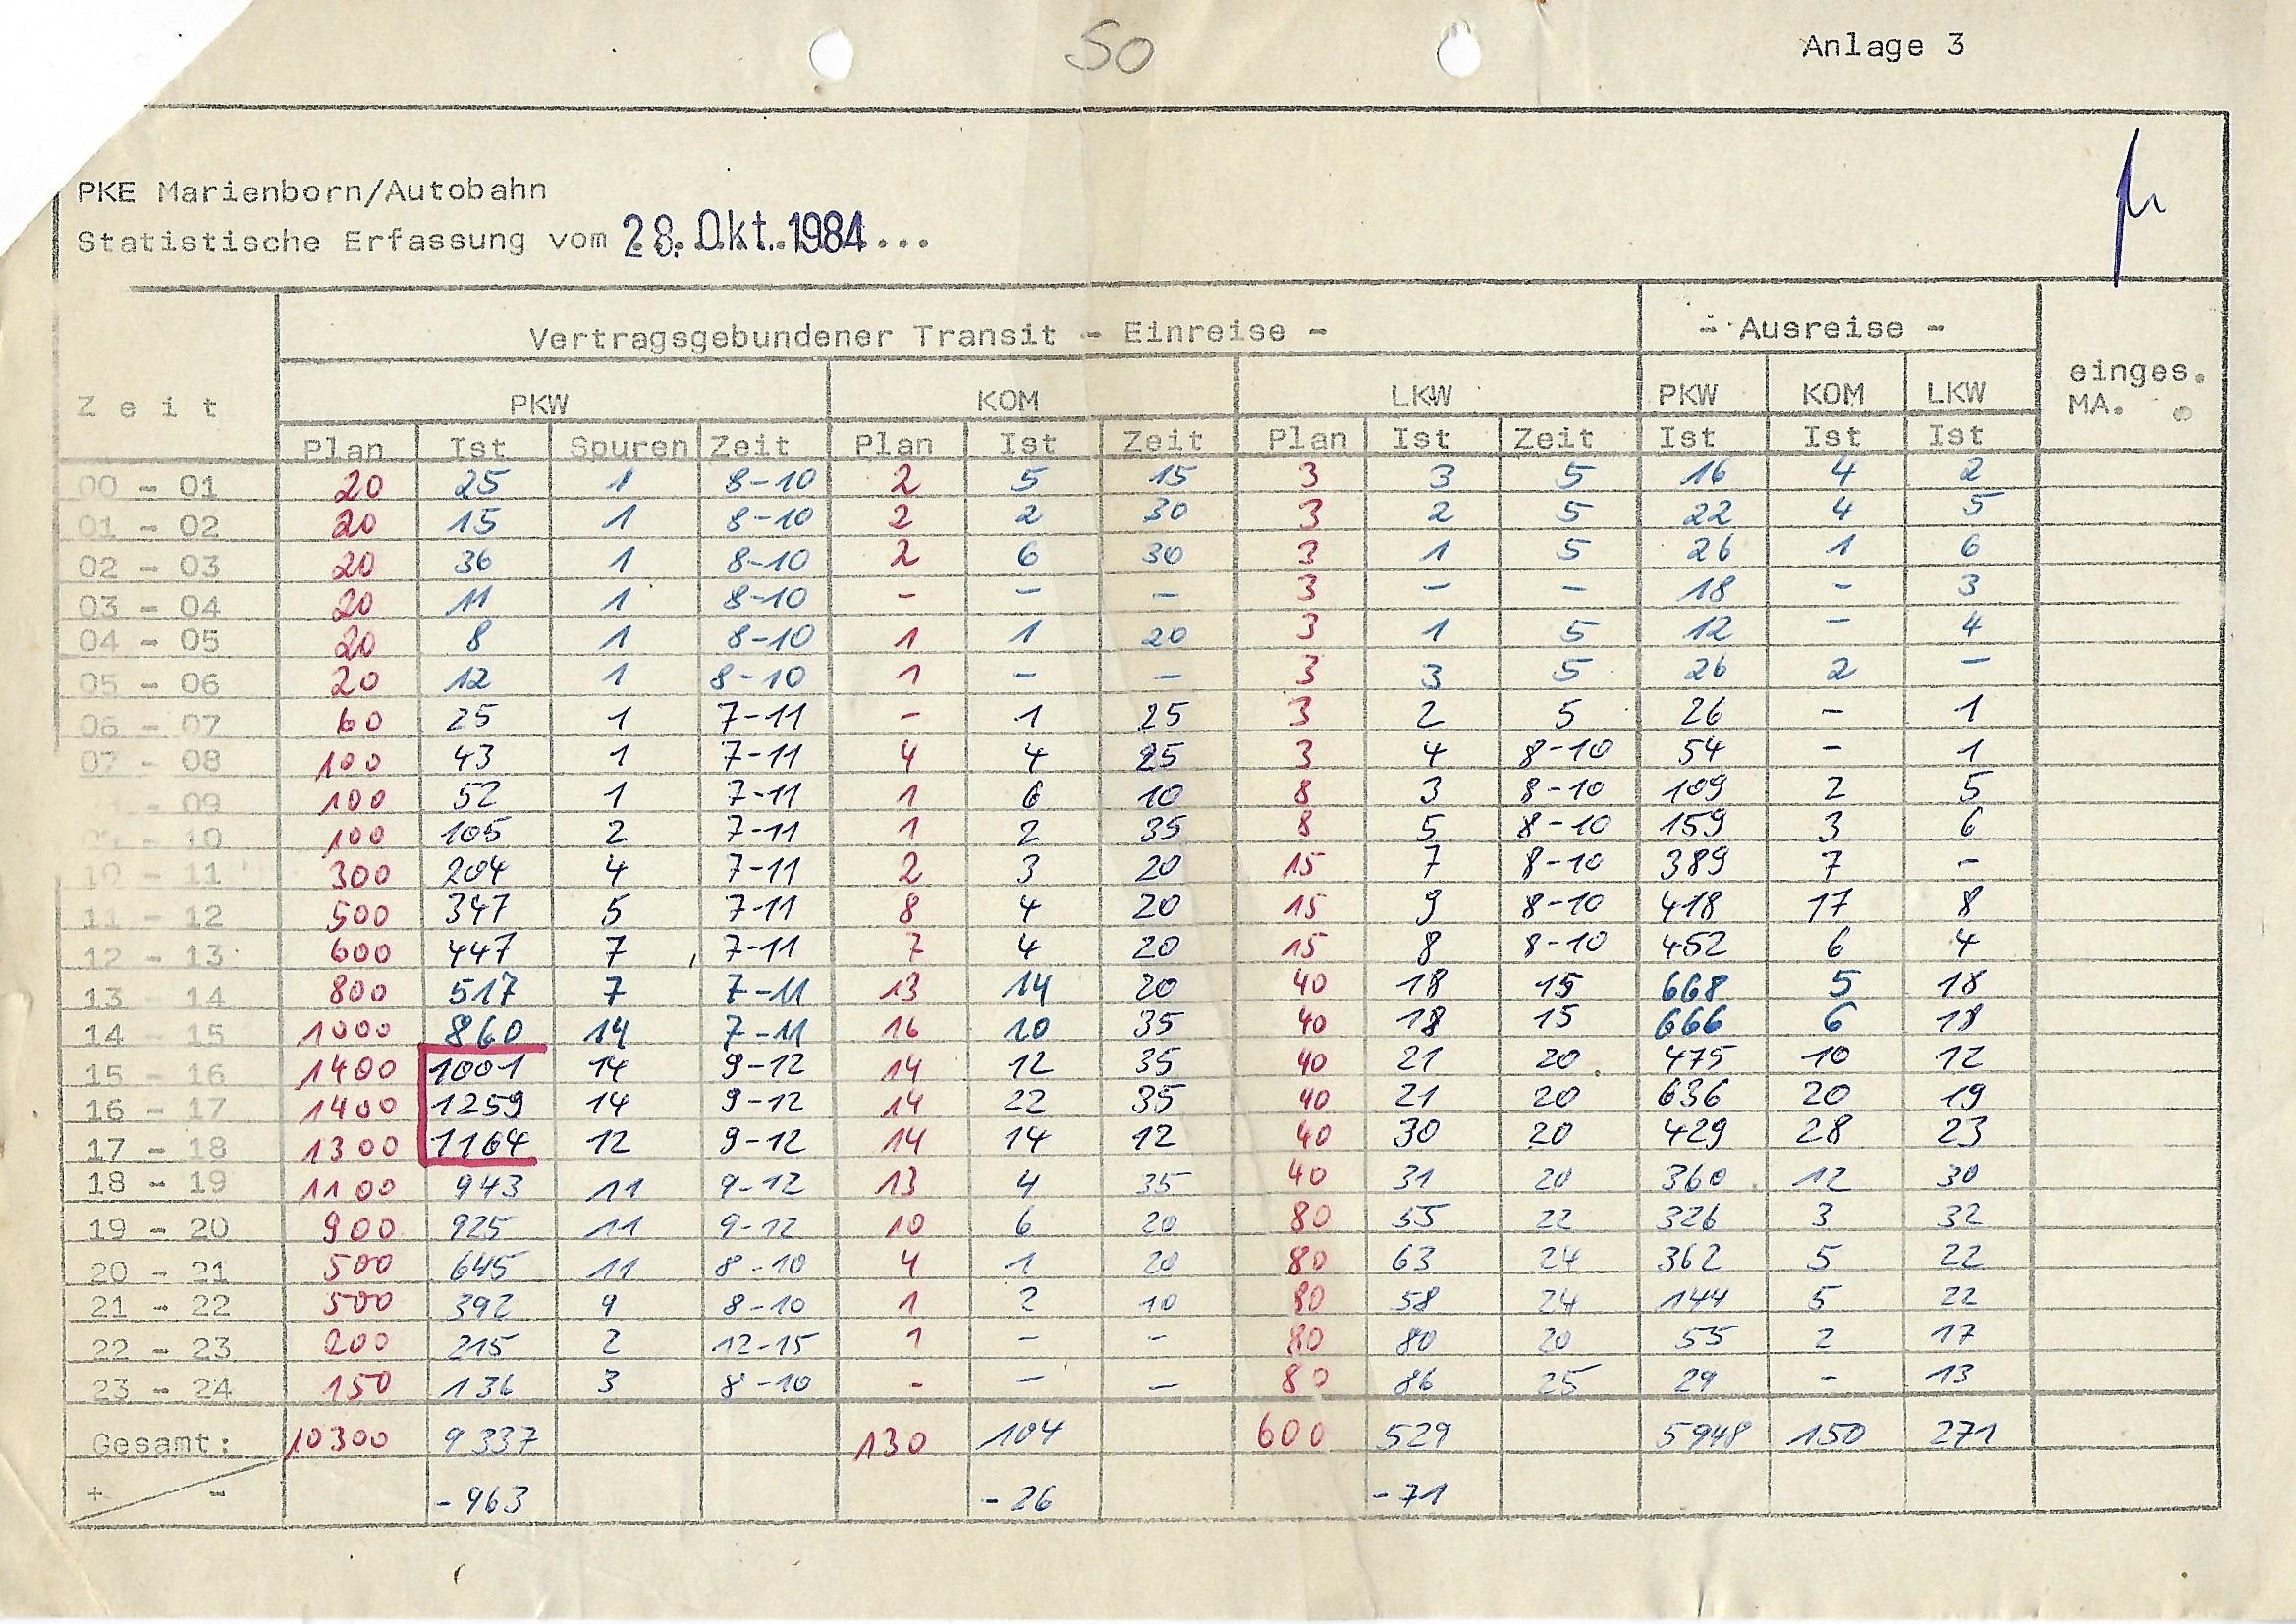 So
Anlage 3
PKE Marienborn/Autobahn
Statistische Erfassung vom 28. Okt. 1984...
Vertragsgebundener Transit - Einreise - - Ausreise -
Zeit PKW KOM LKW PKW KOM LKW einges. MA.
Plan Ist Spuren Zeit Plan Ist Zeit Plan Ist Zeit Ist Ist Ist
00 - 01 20 25 1 8-10 2 5 15 3 3 5 16 4 2
01 - 02 20 15 1 8-10 2 2 30 3 2 5 22 4 5
02 - 03 20 36 1 8-10 2 6 30 3 1 5 26 1 6
03 - 04 20 11 1 8-10 - - - 3 - - 18 - 3
04 - 05 20 8 1 8-10 1 1 20 3 1 5 12 - 4
05 - 06 20 12 1 8-10 1 - - 3 3 5 26 2 -
06 - 07 60 25 1 7-11 - 1 25 3 2 5 26 - 1
07 - 08 100 43 1 7-11 4 4 25 3 4 8-10 54 - 1
- 09 100 52 1 7-11 1 6 10 8 3 8-10 109 2 5
- 10 100 105 2 7-11 1 2 35 8 5 8-10 159 3 6
10 - 11 300 204 4 7-11 2 3 20 15 7 8-10 389 7 -
11 - 12 500 347 5 7-11 8 4 20 15 9 8-10 418 17 8
12 - 13 600 447 7 7-11 7 4 20 15 8 8-10 452 6 4
13 - 14 800 517 7 7-11 13 14 20 40 18 15 668 5 18
14 - 15 1000 860 14 7-11 16 10 35 40 18 15 666 6 18
15 - 16 1400 1001 14 9-12 14 12 35 40 21 20 475 10 12
16 - 17 1400 1259 14 9-12 14 22 35 40 21 20 636 20 19
17 - 18 1300 1164 12 9-12 14 14 12 40 30 20 429 28 23
18 - 19 1100 943 11 9-12 13 4 35 40 31 20 360 12 30
19 - 20 900 925 11 9-12 10 6 20 80 55 22 326 3 32
20 - 21 500 645 11 8-10 4 1 20 80 63 24 362 5 22
21 - 22 500 392 9 8-10 1 2 10 80 58 24 144 5 22
22 - 23 200 215 2 12-15 1 - - 80 80 20 55 2 17
23 - 24 150 136 3 8-10 - - - 80 86 25 29 - 13
Gesamt: 10300 9337 130 104 600 529 5948 150 271
+ - -963 -26 -71